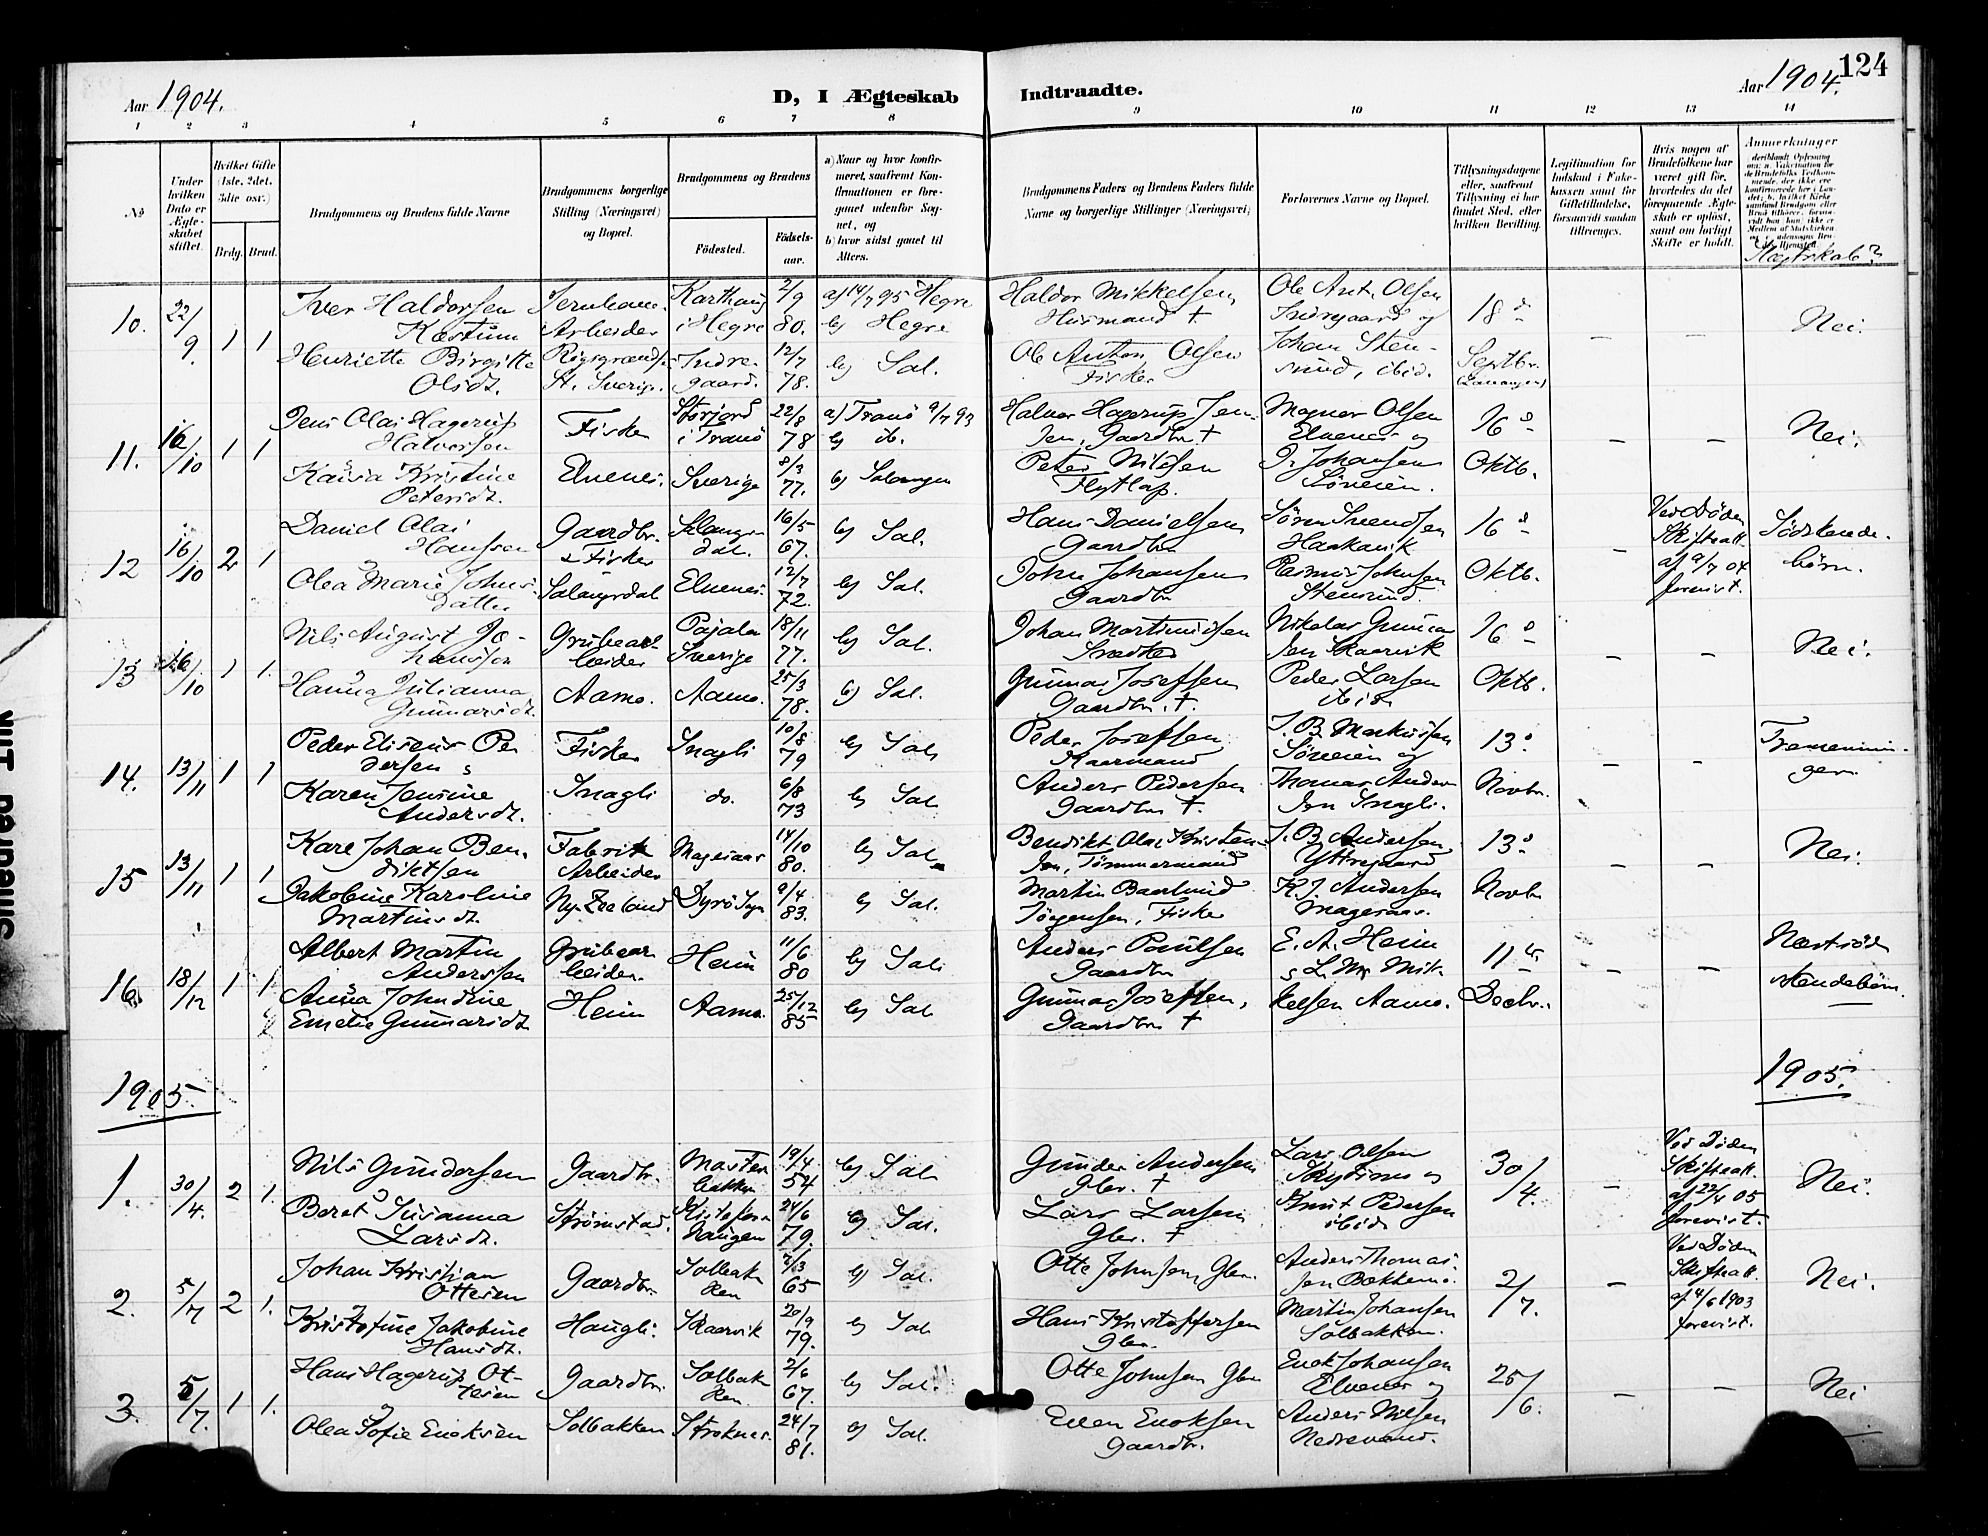 124
Aar 1904.
D, I Ægteskab
Indtraadte.
Aar 1904.
1 2 3 4 5 6 7 8 9 10 11 12 13 14
No
Under hvilken Dato er Ægteskabet stiftet.
Hvilket Gifte (1ste, 2det, 3die osv.)
Brdg. Brud.
Brudgommens og Brudens fulde Navne
Brudgommens borgerlige Stilling (Næringsvei) og Bopæl.
Brudgommens og Brudens
Fødested.
Fødselsaar.
a) Naar og hvor konfirmeret, saafremt Konfirmationen er foregaaet udenfor Sognet, og
b) hvor sidst gaaet til Alters.
Brudgommens Faders og Brudens Faders fulde Navne og borgerlige Stillinger (Næringsvei)
Forlovernes Navne og Bopæl.
Tillysningsdagene eller, saafremt Tillysning ei har fundet Sted, efter hvilken Bevilling.
Legitimation for Indskud i Enkekassen samt for Giftetilladelse, forsaavidt saadan tiltrænges.
Hvis nogen af Brudefolkene har været gift før, hvorledes da det foregaaende Ægteskab er opløst, samt om lovligt Skifte er holdt.
Anmerkninger
Slægtskab?
10. 22/9 1 1
Iver Haldorsen Kastum
Jernbanearbeider
i Hegre
2/9 80.
a) 14/7 95 Hegre
b) Hegre
Haldor Mikkelsen Husmand †
Ole Ant. Olsen Indregaard og
18d
–
–
Nei.
Henriette Birgitte Olsdt.
St. Sverige
Indregaard.
12/7 78.
b) Sal.
Ole Anton Olsen Fisker
Johan Stensund, ibid.
Septbr.
11. 16/10 1 1
Jens Olai Hagerup Halvorsen
Fisker
Storjord i Tranö
22/8 78
a) Tranö 9/7 93
b) ib.
Halvor Hagerup Jensen, Gaardbr †
Magnus Olsen Elvenes og
16d
–
–
Nei.
Kaisa Kristine Petersdt.
Elvenes.
Sverige
8/3 77.
b) Salangen
Peter Nilssen Flytlap.
J. Johansen Söveien.
Oktb.
12 16/10 2 1
Daniel Olai Hanssen
Gaardbr. & Fisker
Salangsdal.
16/5 67.
b) Sal.
Hans Danielsen Gaardbr
Sören Svendsen Haakavik
16d
–
Ved Döden Skifteatt. af 9/7 04 forevist.
Södskendebörn.
Olea Marie Johnsdatter
Salangsdal
Elvenes.
12/7 72.
b) Sal.
John Johansen Gaardbr
Rasmus Johnsen Stensund.
Oktb.
13 16/10 1 1.
Nils August Johansson
Grubearbeider
Pajala Sverige
18/11 77.
b) Sal.
Johan Martinussen Snedker
Nikolai Gunnarsen Skaarvik
16d
–
–
Nei.
Hanna Julianna Gunnarsdt.
Aamo.
Aamo.
25/3 78.
b) Sal.
Gunnar Josefsen Gaardbr. †.
Peder Larsen ibid
Oktb.
14. 13/11 1 1
Peder Eliseus Pedersen
Fisker
Snagli
10/8 79
b) Sal.
Peder Josefsen Kaarmand
J. B. Markussen Söveien og
13d
–
–
Tremenninger.
Karen Jensine Andersdt.
Snagli
do.
6/8 73
b) Sal.
Anders Pedersen Gaardbr †.
Thomas Andersen Snagli.
Novbr.
15 13/11 1 1
Kare Johan Bendiktsen
Fabrik Arbeider
Magesaas
14/10 80.
b) Sal.
Bendikt Olai Kristensen, Tömmermand
J. B. Andersen Yttregaard
13d
–
–
Nei.
Jakobine Karoline Martinsdt.
Ny-Zeeland
Dyrö Sogn
9/4 83.
b) Sal.
Martin Baarlund Jörgensen, Fisker
K. J. Andersen Magesaas.
Novbr
16. 18/12 1 1.
Albert Martin Anderssen
Grubearbeider.
Heim
11/6 80
b) Sal.
Anders Paulsen Gaardbr
E. A. Heim & L. M. Mikkelsen Aamo.
11te
–
–
Næstsödskendebörn.
Anna Johndine Emelie Gunnarsdt.
Heim
Aamo.
25/12 85
b) Sal.
Gunnar Josefsen, Gaardbr †
Decbr.
1905.
1905.
1. 30/4. 2 1.
Nils Gundersen
Gaardbr.
Mastenbakken
19/4 54
b) Sal.
Gunder Andersen Gbr. †
Lars Olsen og
30/4.
–
Ved Döden Skifteatt. af 22/4 05 forevist.
Nei.
Beret Susanna Larsdt.
Strömstad.
24/6 79.
b) Sal.
Lars Larsen Gbr. †
Knut Pedersen ibid.
2. 5/7 2 1.
Johan Kristian Ottesen
Gaardbr.
Solbakken
7/3 65
b) Sal.
Otte Johnsen, Gbr.
Anders Thomassen Bækkemo.
2/7.
–
Ved Döden Skifteatt. af 4/6 1903 forevist.
Nei.
Kristofine Jakobine Hansdt.
Haugli.
Skaarvik
20/9 79.
b) Sal.
Hans Kristoffersen Gbr.
Martin Johansen Solbakken.
3. 5/7. 1 1.
Hans Hagerup Ottesen
Gaardbr
Solbakken.
2/6 67.
b) Sal.
Otte Johnsen Gbr
Enok Johansen Elvenes og
25/6.
–
–
Nei
Olea Sofie Enoksen
Solbakken
Stroknes.
24/7 81.
b) Sal.
Even Enoksen Gaardbr.
Anders Nilsen Nedrevand.